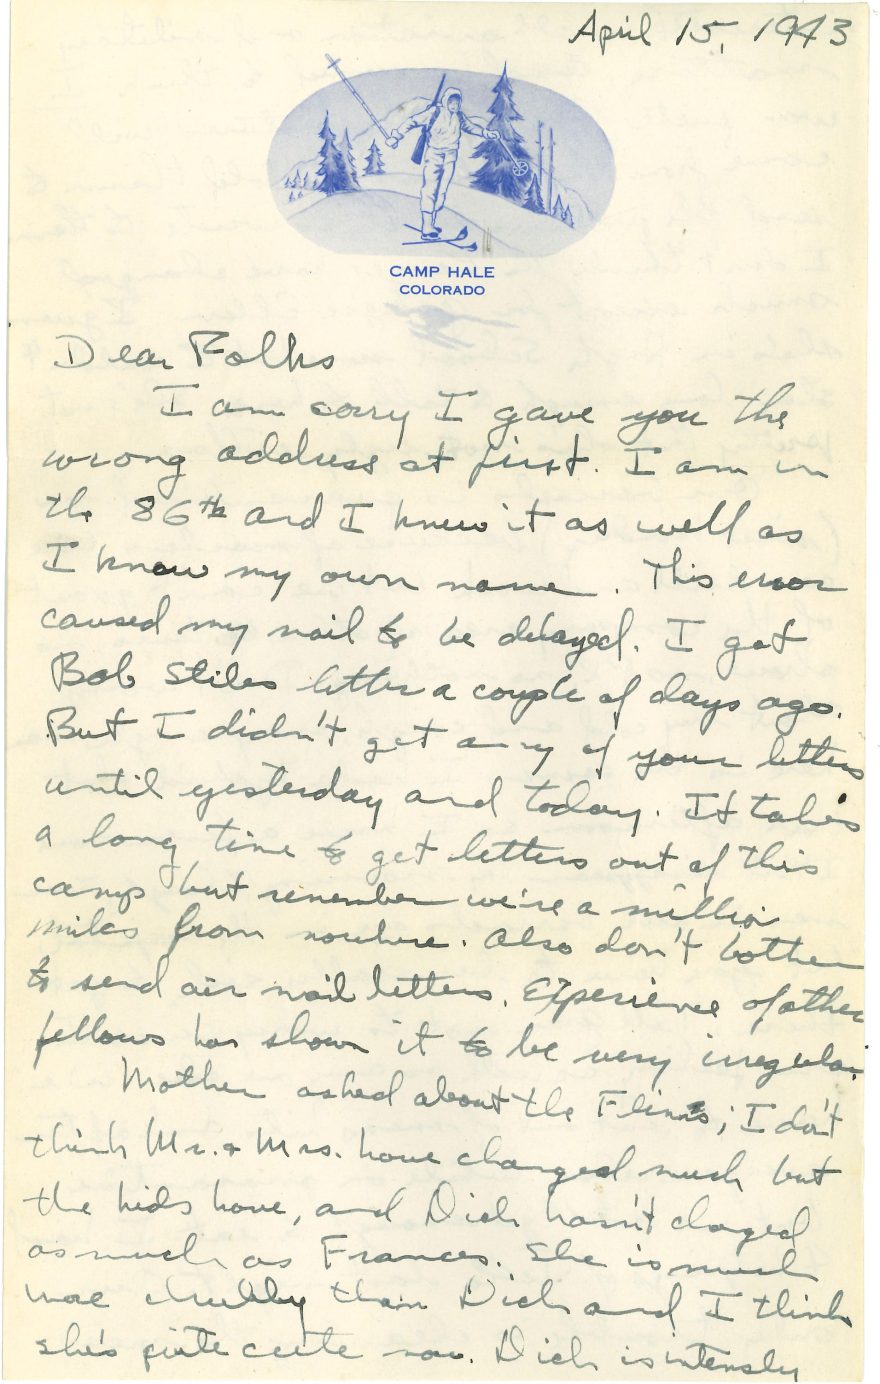 April 15, 1943
CAMP HALE
COLORADO
Dear Folks
I am sorry I gave you the
wrong address at first. I am in
the 86th and I knew it as well as
I know my own name. This error
caused my mail to be delayed. I got
Bob Stiles letter a couple of days ago.
But I didn't get any of your letters
until yesterday and today. It takes
a long time to get letters out of this
camp but remember we're a million
miles from nowhere. Also don't bother
to send air mail letters. Experience of other
fellows has shown it to be very irregular.
Mother asked about the Flinns; I don't
think Mr. + Mrs. have changed much but
the kids have, and Dick hasn't changed
as much as Frances. She is much
more chubby than Dick and I think
she's quite cute now. Dick is intensly